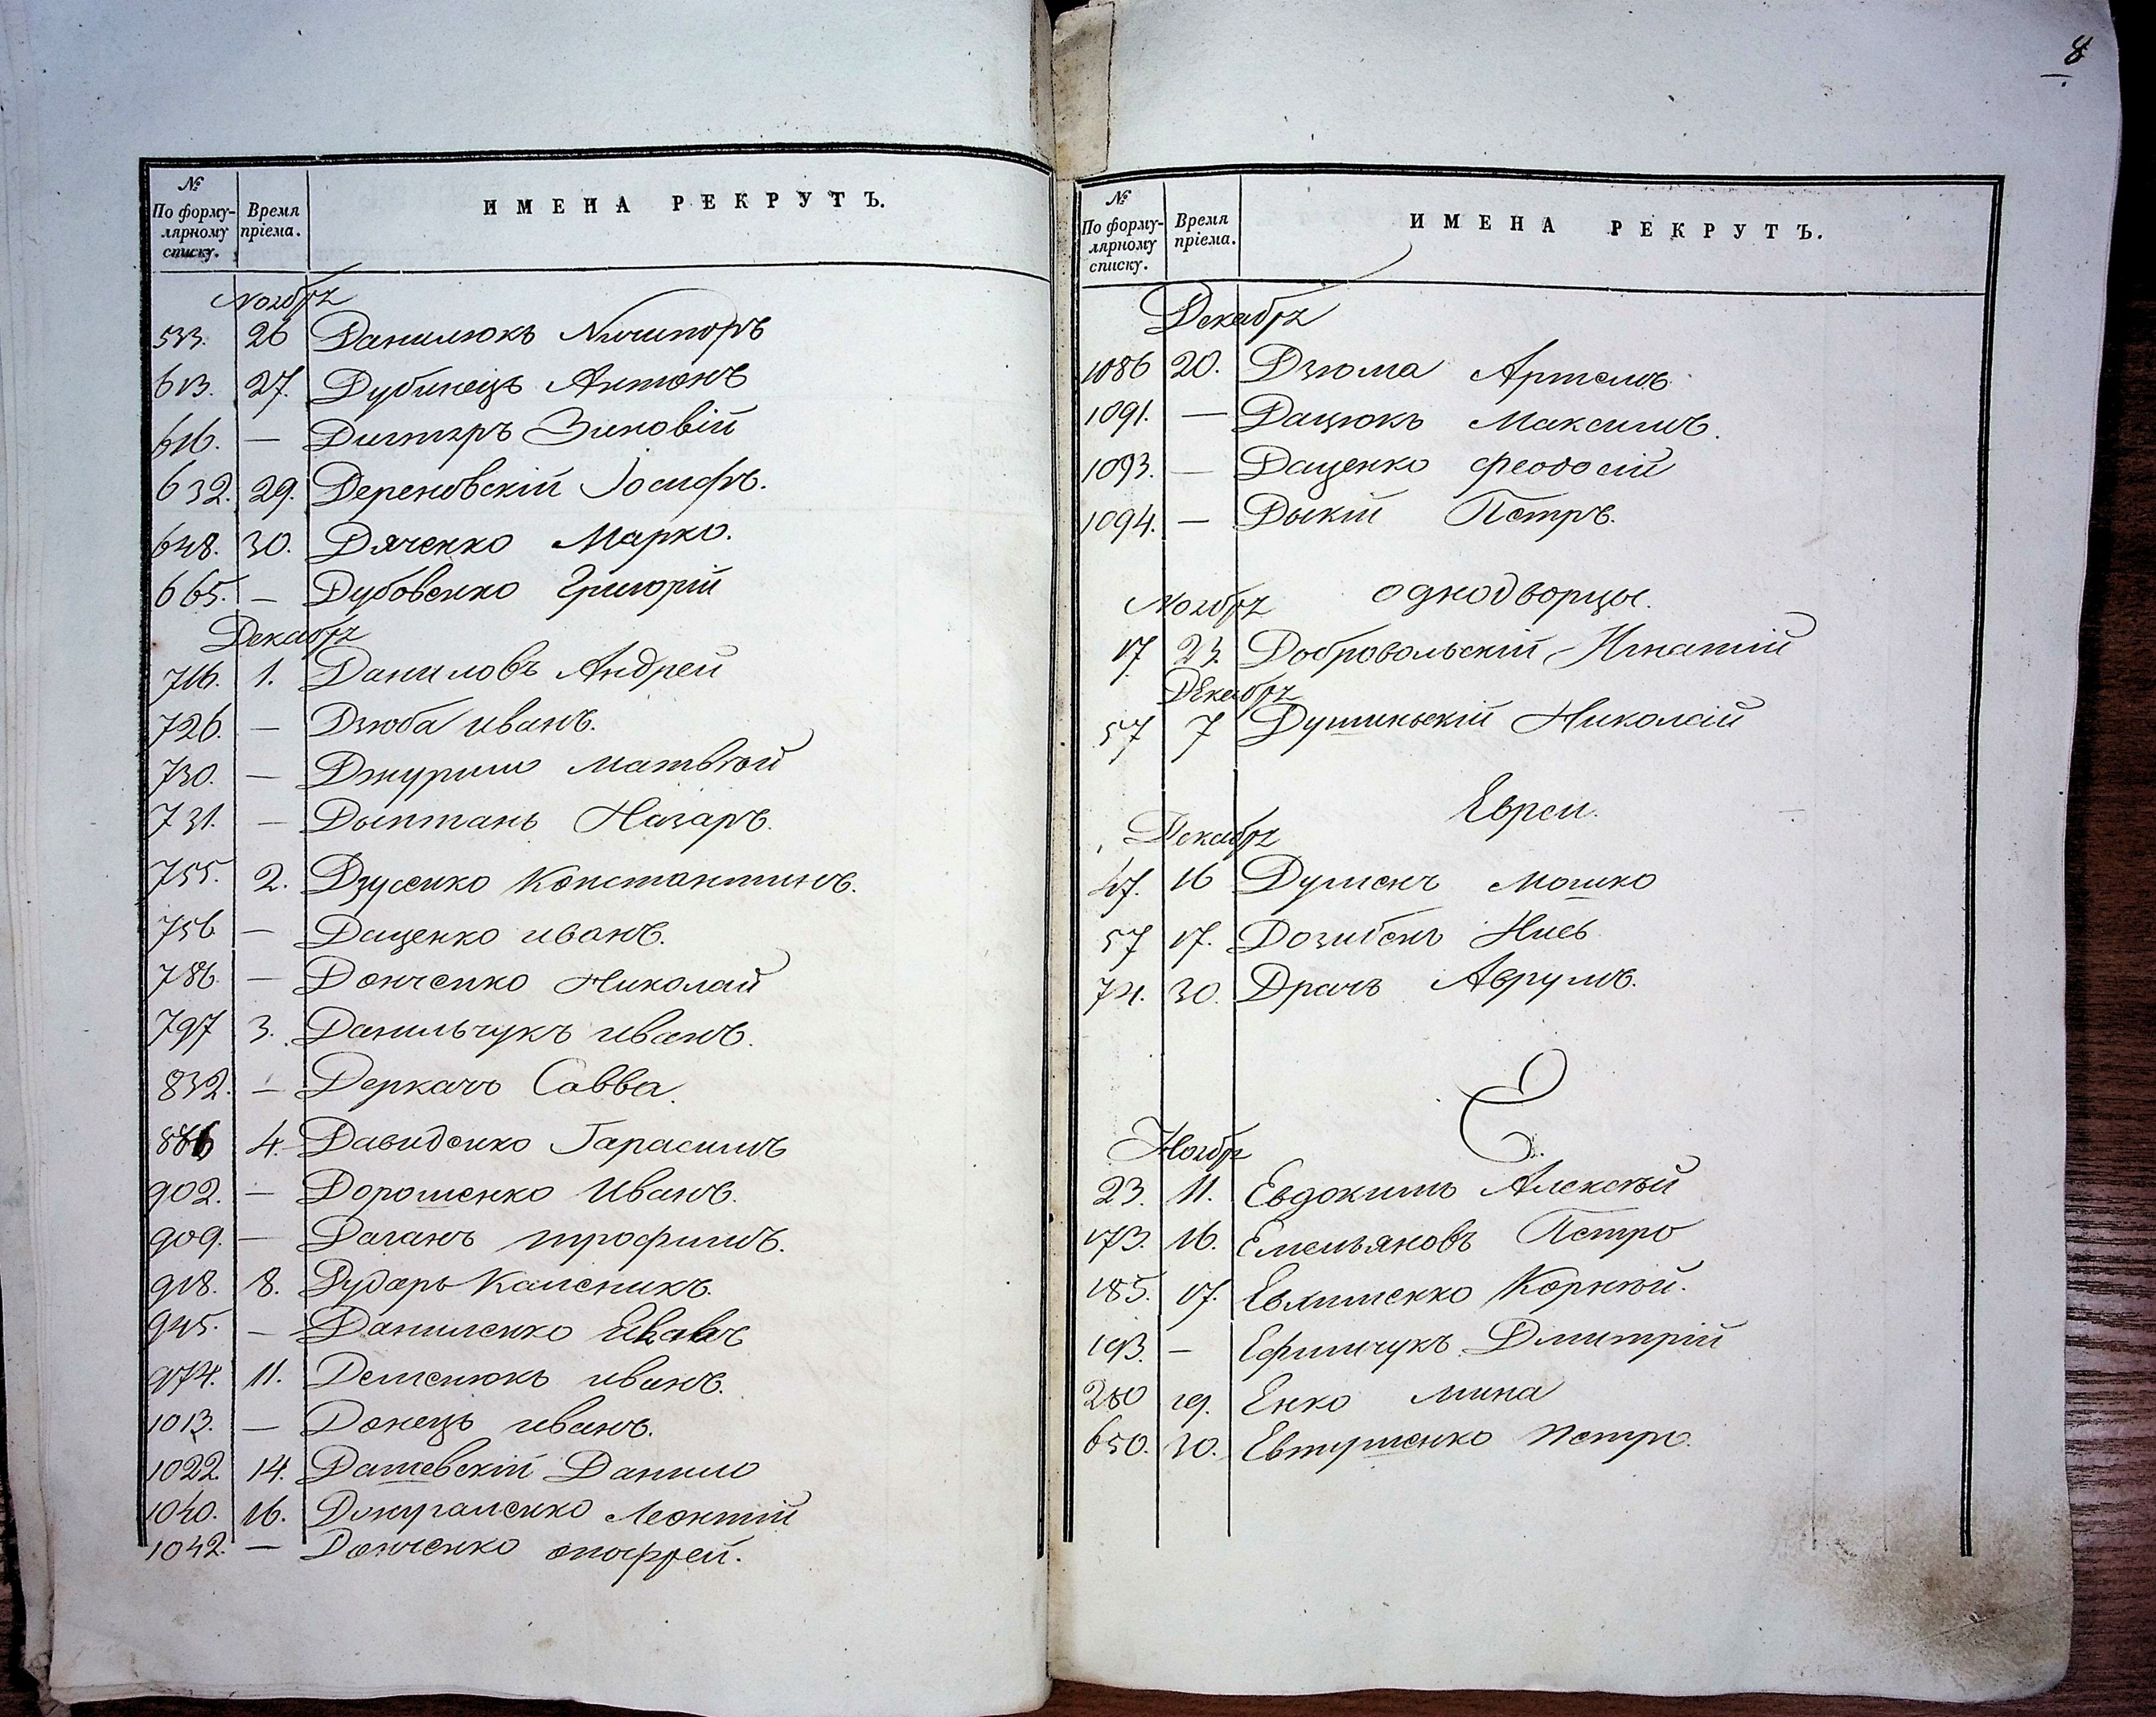 №
По форму-
лярному
списку.
Время
пріема.
ИМЕНА РЕКРУТЪ.
Ноябрь
533. 26 Данилюкъ Ничипоръ
613. 27. Дубинецъ Антонъ
616. — Зиновій
632. 29. Дереновскій Іосифъ.
648. 30. Дяченко Марко.
665. — Дубовенко Григорій
Декабрь
716. 1. Даниловъ Андрей
726. — Дзюба иванъ.
730. — Матвѣй
731. — Дыптань Назаръ.
755. 2. Дзусенко Константинъ.
756 — Даценко иванъ.
786. — Донченко Николай
797 3. Данильчукъ иванъ.
832. — Деркачъ Савва.
886 4. Давиденко Гарасимъ
902. — Дорошенко Иванъ.
909. — Даганъ трофимъ.
918. 8. Дударь Каленикъ.
945. — Даниленко
974. 11. Деменюкъ иванъ.
1013. — Донецъ иванъ.
1022. 14. Дашевскій Данило
1040. 16. Леонтій
1042. — Донченко онофрей.
8
№
По форму-
лярному
списку.
Время
пріема.
ИМЕНА РЕКРУТЪ.
Декабрь
1086 20. Дзюма Артемъ.
1091. — Дацюкъ Максимъ.
1093. — Даценко Феодосій
1094. — Дыкій Петръ.
однодворцы.
Ноябрь
17 23. Добровольскій Игнатій
Декабрь
57 7 Душинскій Николай
Евреи.
Декабрь
47. 16 Мошко
57 17. Нись
74. 30. Драчъ Аврумъ.
Е.
Ноябрь
23. 11. Евдокимъ Алексѣй
173. 16. Емельяновъ Петро
185. 17. Евхименко Корнѣй.
193. — Ефимчукъ Дмитрій
280 19. Енко Мина
650. 30. Евтушенко Петро.